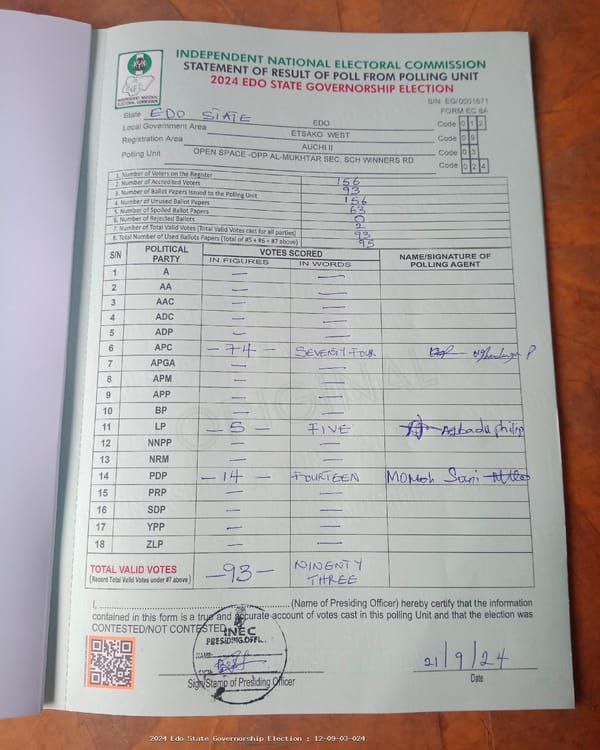 INDEPENDENT NATIONAL ELECTORAL COMMISSION
STATEMENT OF RESULT OF POLL FROM POLLING UNIT
2024 EDO STATE GOVERNORSHIP ELECTION
INEC
INDEPENDENT NATIONAL ELECTORAL COMMISSION
S/N: EG/0001671
FORM EC 8A
State EDO STATE EDO Code 0 1 2
Local Government Area ETSAKO WEST Code 0 9
Registration Area AUCHI II Code 0 3
Polling Unit OPEN SPACE -OPP AL-MUKHTAR SEC, SCH WINNERS RD Code 0 2 4
1. Number of Voters on the Register 156
2. Number of Accredited Voters 93
3. Number of Ballot Papers Issued to the Polling Unit 156
4. Number of Unused Ballot Papers 63
5. Number of Spoiled Ballot Papers 0
6. Number of Rejected Ballots 2
7. Number of Total Valid Votes (Total Valid Votes cast for all parties) 93
8. Total Number of Used Ballots Papers (Total of #5 + #6 + #7 above) 95
S/N POLITICAL PARTY VOTES SCORED NAME/SIGNATURE OF POLLING AGENT
IN FIGURES IN WORDS
1 A — —
2 AA — —
3 AAC — —
4 ADC — —
5 ADP — —
6 APC - 74 - SEVENTY FOUR
7 APGA — —
8 APM — —
9 APP — —
10 BP — —
11 LP - 5 - FIVE Agbadu philip
12 NNPP — —
13 NRM — —
14 PDP - 14 - FOURTEEN MOMOH Sani
15 PRP — —
16 SDP — —
17 YPP — —
18 ZLP — —
TOTAL VALID VOTES - 93 - NINENTY THREE
(Record Total Valid Votes under #7 above)
ORIGINAL
I, (Name of Presiding Officer) hereby certify that the information
contained in this form is a true and accurate account of votes cast in this polling Unit and that the election was
CONTESTED/NOT CONTESTED
INEC
PRESIDING OFF.
NAME:
21/9/24
Sign/Stamp of Presiding Officer Date
2024 Edo State Governorship Election : 12-09-03-024